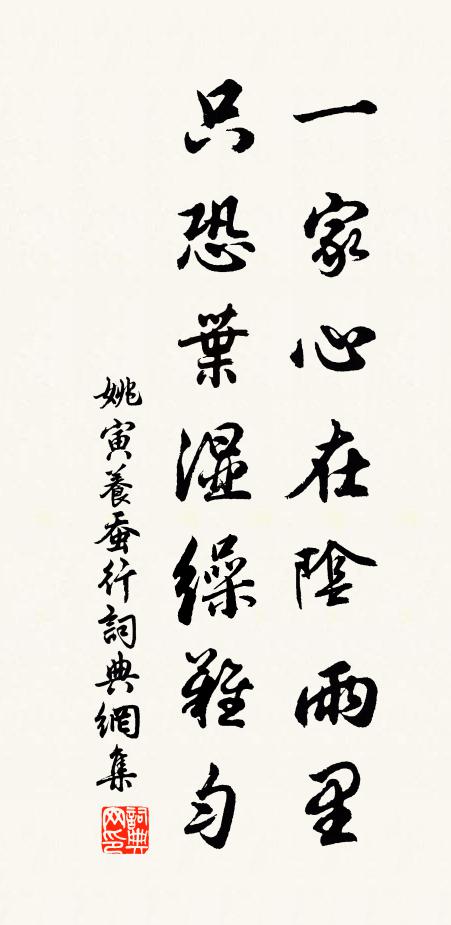 一家心在陰雨里
只恐葉濕繰難匀
姚寅養蚕行詞典網集
詞典网印